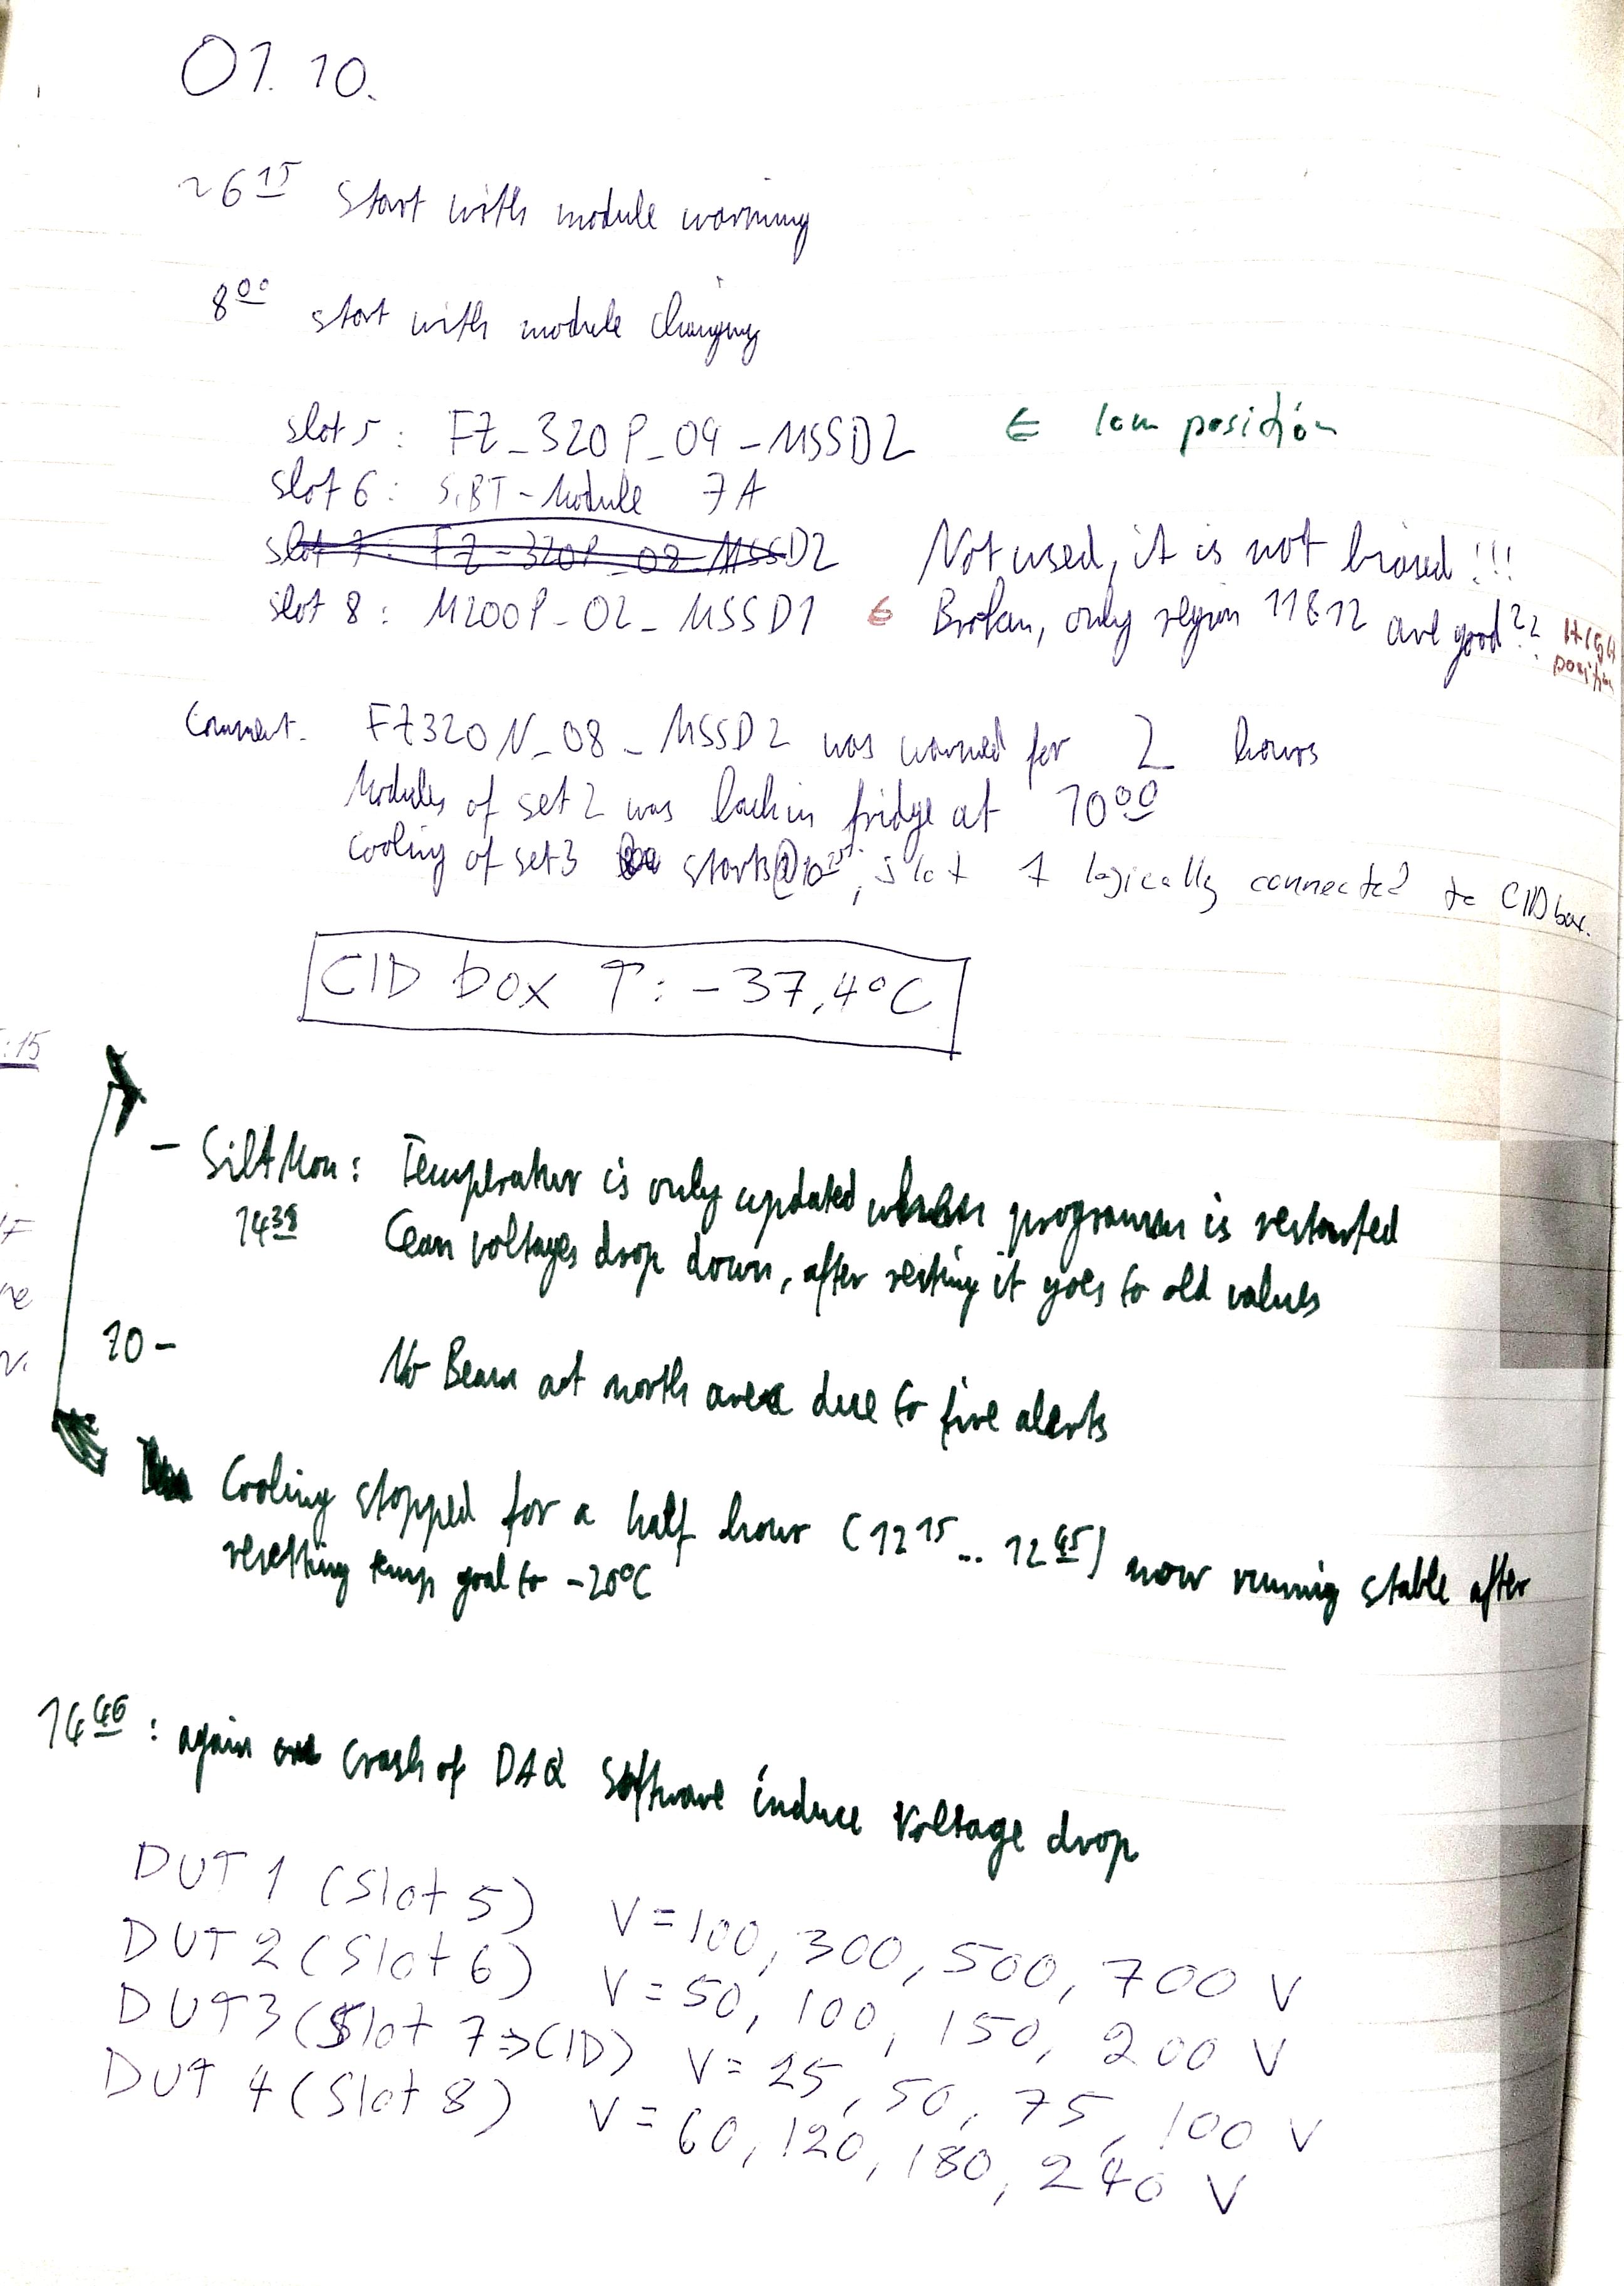 01.10.
~6 15 Start with module warming
8 00 start with module changing
slot 5: FZ_320P_09-MSSD2 ∈ low position
slot 6: SiBT-Module 7A
slot 7: FZ-320P_08-MSSD2 Not used, it is not biased!!!
slot 8: M200P-02_MSSD1 ∈ Broken, only region 11&12 are good?? HIGH position
Comment. FZ320N_08_MSSD2 was warmed for 2 hours
Modules of set 2 was back in fridge at 10 00
cooling of set 3 starts@10 , slot 7 logically connected to CID box.
CID box T: -37,4°C
:15
- Temperatur is only updated when programm is restarted
14 38 voltages drop down, after it goes to old values
10 -
No Beam at north area due to fire alerts
Cooling stopped for a half hour (12 15 ... 12 45) now running stable after
resetting temp goal to -20°C
14 46: again crash of DAQ Software induce Voltage drop
DUT 1 (Slot 5) V=100, 300, 500, 700 V
DUT 2 (Slot 6) V=50, 100, 150, 200 V
DUT 3 (Slot 7=>CID) V=25, 50, 75, 100 V
DUT 4 (Slot 8) V=60, 120, 180, 240 V